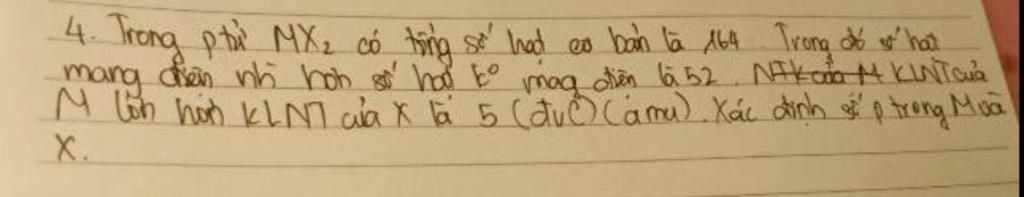 4. Trong ptử MX2 có tổng số hạt cơ bản là 164. Trong đó số hạt
mang điện nhì hơn số hạt ko mag điện là 52. NTK của M KLNT của
M lớn hơn KLNT của X là 5 (đvC) (amu). Xác định số p trong M và
X.